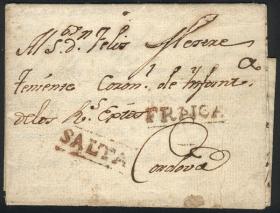 Al S.r d.n Felix
teniente Coron.l de Infant.a
de los R.s Eg.tos FRANCA
SALTA Cordova